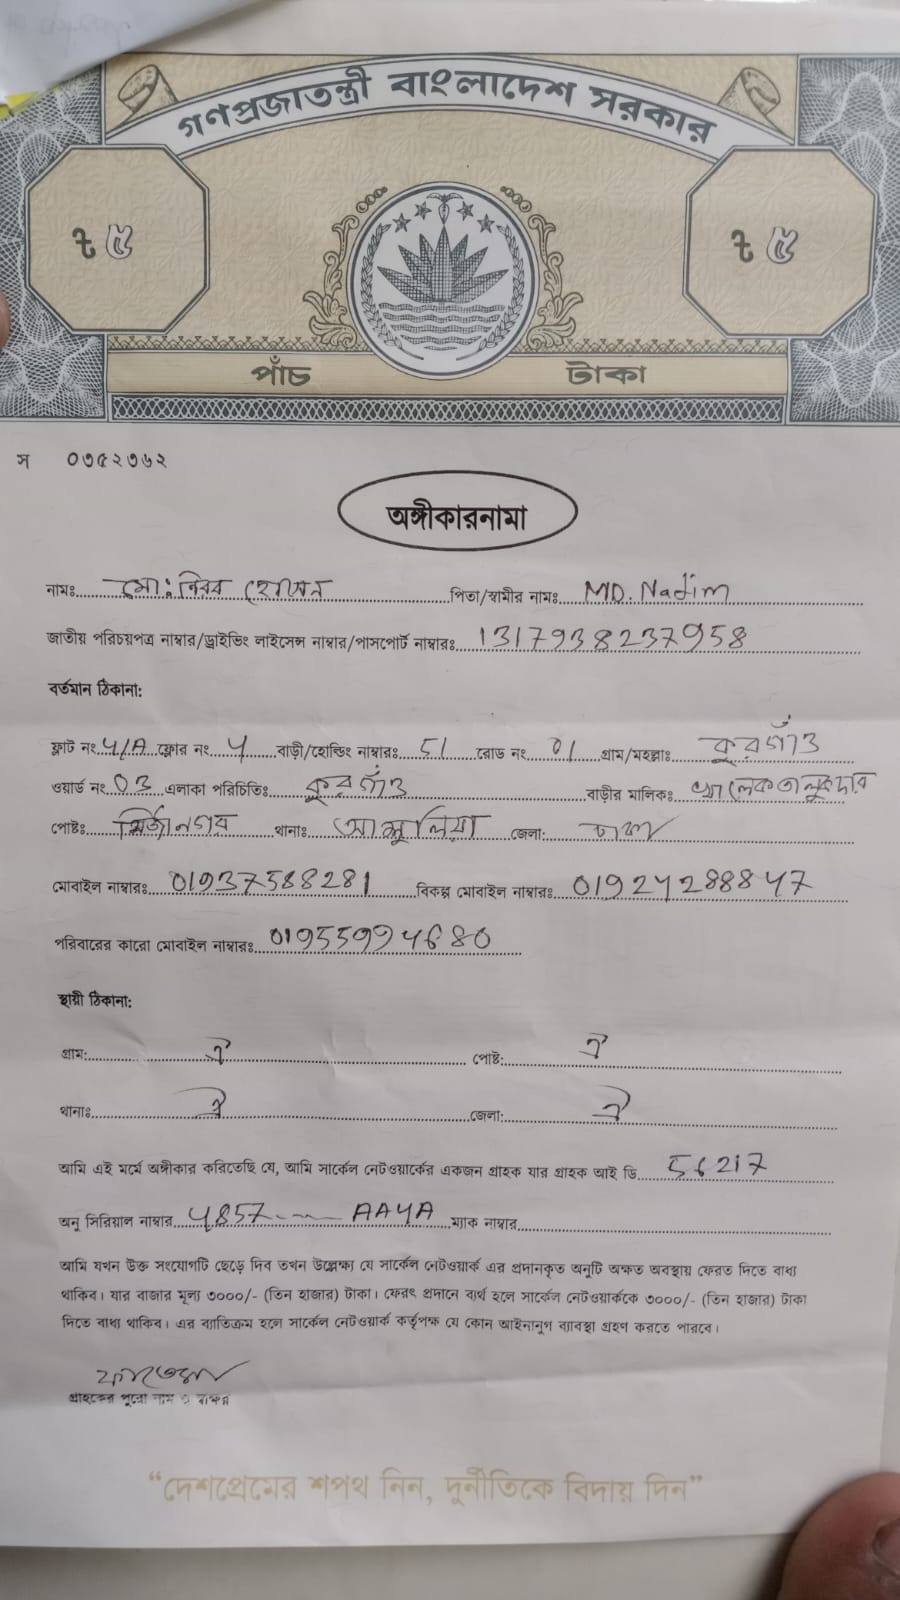 গণপ্রজাতন্ত্রী বাংলাদেশ সরকার
৳ ৫ ৳ ৫
পাঁচ টাকা
স ০৩৫২৩৬২
অঙ্গীকারনামা
নামঃ মো: নিরব হোসেন পিতা/স্বামীর নামঃ MD. Nadim
জাতীয় পরিচয়পত্র নাম্বার/ড্রাইভিং লাইসেন্স নাম্বার/পাসপোর্ট নাম্বারঃ 1317938237958
বর্তমান ঠিকানা:
ফ্লাট নং 4/A ফ্লোর নং 4 বাড়ী/হোল্ডিং নাম্বারঃ 51 রোড নং 01 গ্রাম/মহল্লাঃ কুরগাঁও
ওয়ার্ড নং 03 এলাকা পরিচিতিঃ কুরগাঁও বাড়ীর মালিকঃ তালুকদার
পোষ্টঃ মির্জানগর থানাঃ আশুলিয়া জেলা: ঢাকা
মোবাইল নাম্বারঃ 01937588281 বিকল্প মোবাইল নাম্বারঃ 01924288847
পরিবারের কারো মোবাইল নাম্বারঃ 01955994680
স্থায়ী ঠিকানা:
গ্রাম: ঐ পোষ্ট: ঐ
থানাঃ ঐ জেলা: ঐ
আমি এই মর্মে অঙ্গীকার করিতেছি যে, আমি সার্কেল নেটওয়ার্কের একজন গ্রাহক যার গ্রাহক আই ডি 56217
অনু সিরিয়াল নাম্বার 4857 AA4A ম্যাক নাম্বার
আমি যখন উক্ত সংযোগটি ছেড়ে দিব তখন উল্লেক্ষ্য যে সার্কেল নেটওয়ার্ক এর প্রদানকৃত অনুটি অক্ষত অবস্থায় ফেরত দিতে বাধ্য
থাকিব। যার বাজার মূল্য ৩০০০/- (তিন হাজার) টাকা। ফেরৎ প্রদানে ব্যর্থ হলে সার্কেল নেটওয়ার্ককে ৩০০০/- (তিন হাজার) টাকা
দিতে বাধ্য থাকিব। এর ব্যাতিক্রম হলে সার্কেল নেটওয়ার্ক কর্তৃপক্ষ যে কোন আইনানুগ ব্যাবস্থা গ্রহণ করতে পারবে।
গ্রাহকের পুরো নাম ও স্বাক্ষর
“দেশপ্রেমের শপথ নিন, দুর্নীতিকে বিদায় দিন”